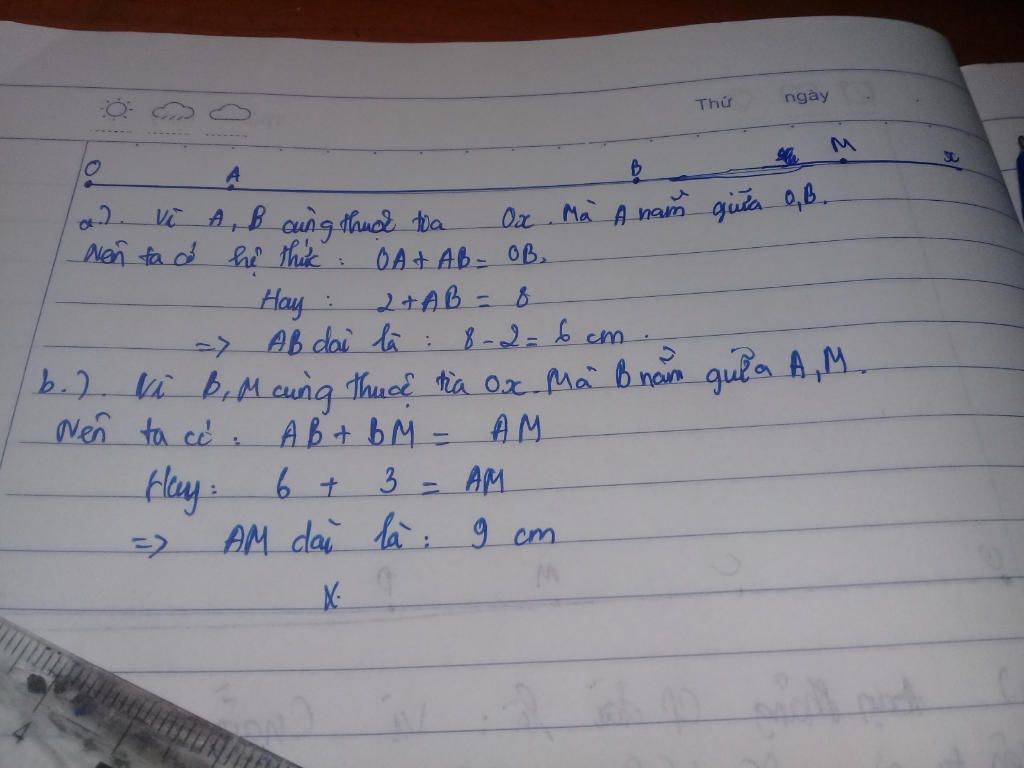 Thứ ngày
O A B M x
a). Vì A, B cùng thuộc tia Ox. Mà A nằm giữa O,B.
Nên ta có hệ thức : OA + AB = OB.
Hay : 2 + AB = 8
=> AB dài là : 8 - 2 = 6 cm.
b.). Vì B, M cùng thuộc tia Ox. Mà B nằm giữa A, M.
Nên ta có : AB + BM = AM
Hay : 6 + 3 = AM
=> AM dài là : 9 cm
4